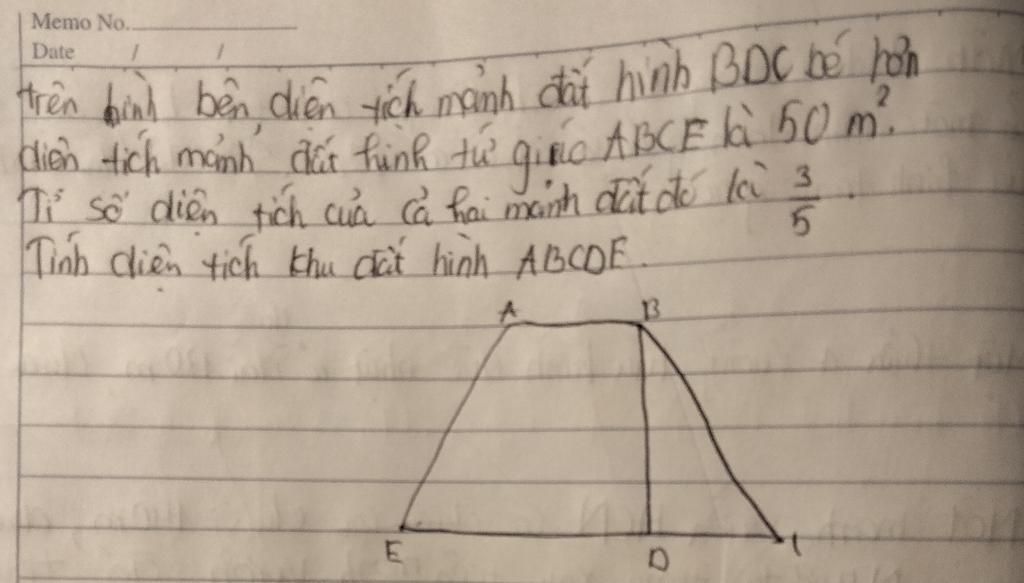 Memo No.
Date / /
trên hình bên, diện tích mảnh đất hình BDC bé hơn
diên tích mảnh đất hình tứ giác ABCE là 50 m².
Tỉ số diện tích của cả hai mảnh đất đó là 3/5.
Tính diện tích khu đất hình ABCDE.
A B
E D C